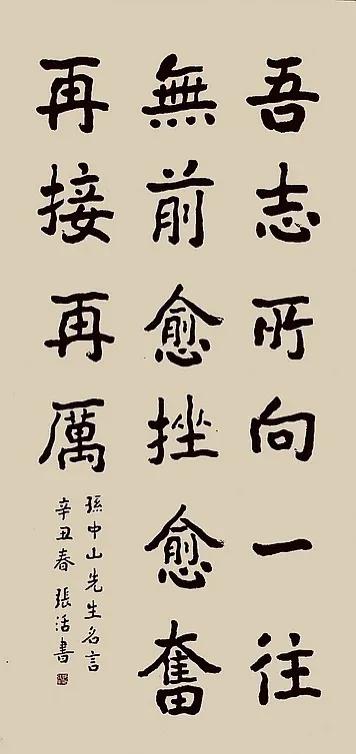 吾志所向一往
無前愈挫愈奮
再接再厲
孫中山先生名言
辛丑春張活書